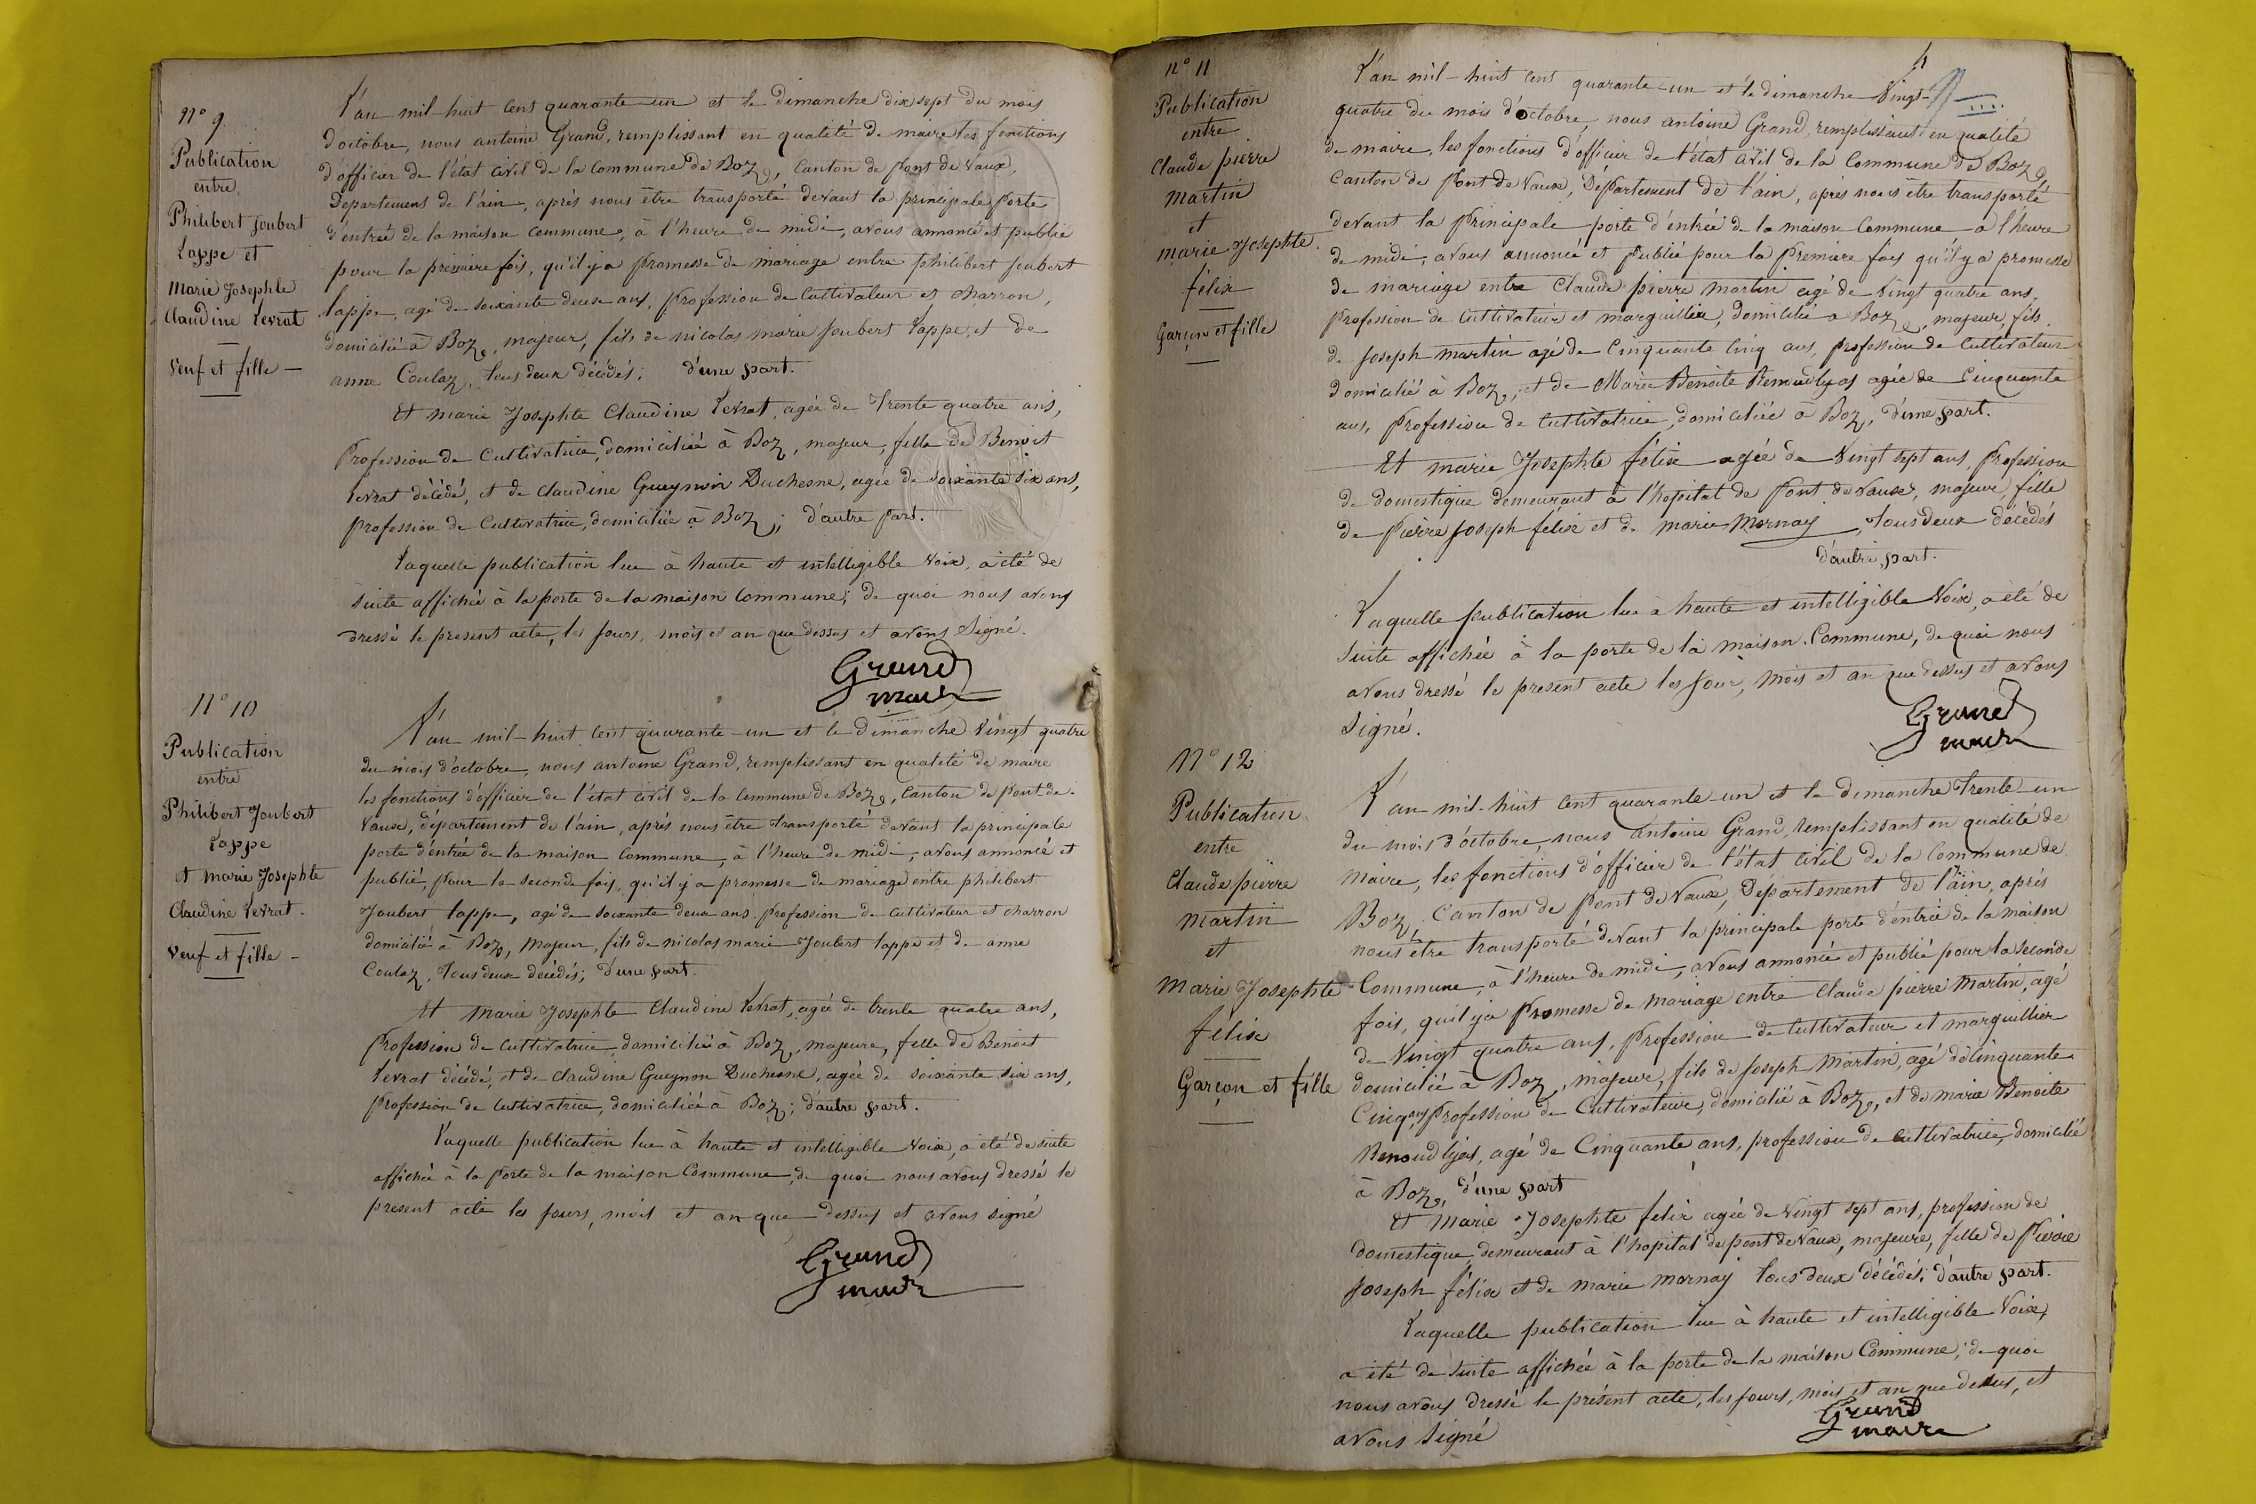 n° 9
Publication
entre
Philibert Joubert
Lappe et
Marie Josephte
Claudine Levrat
Veuf et fille
L'an mil-huit cent quarante-un et le dimanche dix sept du mois
d'octobre, nous antoine Grand, remplissant en qualité de maire les fonctions
d'officier de l'état civil de la commune de Boz, Canton de Pont de Vaux,
Département de l'ain, après nous être transporté devant la principale porte
d'entrée de la maison commune, à l'heure de midi, avons annoncé et publié
pour la première fois, qu'il y a promesse de mariage entre philibert Joubert
lappe, agé de soixante deux ans, profession de Cultivateur et charron,
domicilié à Boz, majeur, fils de nicolas marie Joubert Lappe, et de
anne Coulaz, tous deux décédés; d'une part.
Et marie Josephte Claudine Levrat, agée de Trente quatre ans,
Profession de Cultivatrice, domiciliée à Boz, majeur, fille de Benoit
Levrat décédé, et de claudine Gueynon Duchesne, agée de soixante six ans,
profession de Cultivatrice, domiciliée à Boz; d'autre part.
Laquelle publication lue à haute et intelligible Voix, a été de
suite affichée à la porte de la maison Commune; de quoi nous avons
dressé le present acte, les jours, mois et an que dessus et avons Signé.
Grand
maire
N° 10
Publication
entre
Philibert Joubert
Lappe
et marie Josephte
Claudine Levrat.
Veuf et fille
L'an mil-huit cent quarante-un et le Dimanche Vingt quatre
du mois d'octobre, nous antoine Grand, remplissant en qualité de maire
les fonctions d'officier de l'état civil de la commune de Boz, Canton de pont de
Vaux, département de l'ain, après nous être transporté devant la principale
porte d'entrée de la maison Commune, à l'heure de midi, avons annoncé et
publié, pour la seconde fois, qu'il y a promesse de mariage entre philibert
Joubert lappe, agé de soixante deux ans profession de cultivateur et charron
domicilié à Boz, majeur, fils de nicolas marie Joubert lappe et de anne
Coulaz, tous deux décédés; d'une part.
Et Marie Josephte Claudine Levrat, agée de trente quatre ans,
Profession de Cultivatrice domiciliée à Boz, majeure, fille de Benoit
Levrat décédé, et de claudine Gueynon Duchesne, agée de soixante six ans,
Profession de Cultivatrice, domiciliée à Boz; d'autre part.
Laquelle publication lue à haute et intelligible Voix, a été de suite
affichée à la porte de la maison Commune, de quoi nous avons dressé le
present acte les jours, mois et an que dessus et avons signé
Grand
maire
4
n° 11
Publication
entre
Claude pierre
Martin
et
marie Josephte
félix
Garçon et fille
L'an mil-huit cent quarante-un et le dimanche Vingt-
quatre du mois d'octobre, nous antoine Grand, remplissant en qualité
de maire, les fonctions d'officier de l'état civil de la Commune de Boz,
Canton de Pont de Vaux, Département de l'ain, après nous être transporté
devant la Principale porte d'entrée de la maison Commune à l'heure
de midi, avons annoncé et publié pour la Première fois qu'il y a promesse
de mariage entre Claude pierre martin agé de Vingt quatre ans,
profession de Cultivateur et marguillier, domicilié à Boz, majeur, fils
de Joseph martin agé de Cinquante Cinq ans, profession de Cultivateur
domicilié à Boz, et de Marie Benoite Renoud lyas agée de Cinquante
ans, Profession de Cultivatrice domiciliée à Boz, d'une part.
Et marie Josephte félix agée de Vingt sept ans, Profession
de domestique demeurant à l'hopital de Pont de vaux, majeur, fille
de Pierre Joseph felix et de marie Mornay, tous deux décédés
d'autre part.
Laquelle publication lue à haute et intelligible Voix, a été de
suite affichée à la porte de la maison Commune, de quoi nous
avons dressé le present acte les jour, mois et an que dessus et avons
Signé.
Grand
maire
N° 12
Publication
entre
Claude pierre
Martin
et
Marie Josephte
félix
Garçon et fille
L'an mil-huit cent quarante-un et le dimanche Trente-un
du mois d'octobre, nous antoine Grand, remplissant en qualité de
maire, les fonctions d'officier de l'état civil de la Commune de
Boz, Canton de Pont de Vaux, Département de l'ain, après
nous être transporté devant la principale porte d'entrée de la maison
Commune, à l'heure de midi, avons annoncé et publié pour la Seconde
fois, qu'il y a Promesse de mariage entre Claude pierre Martin, agé
de Vingt quatre ans, profession de Cultivateur et marguillier
domicilié à Boz, majeur, fils de Joseph Martin, agé de Cinquante
Cinq ans, Profession de Cultivateur, domicilié à Boz, et de marie Benoite
Renoud lyas, agé de Cinquante ans, profession de cultivatrice, domicilié
à Boz, d'une part
Et Marie Josephte félix agée de Vingt sept ans, profession de
domestique demeurant à l'hopital de pont de Vaux, majeure, fille de Pierre
Joseph félix et de marie mornay tous deux décédés; d'autre part.
Laquelle publication lue à haute et intelligible Voix,
a été de suite affichée à la porte de la maison Commune; de quoi
nous avons dressé le présent acte, les jours, mois et an que dessus, et
avons Signé
Grand
maire